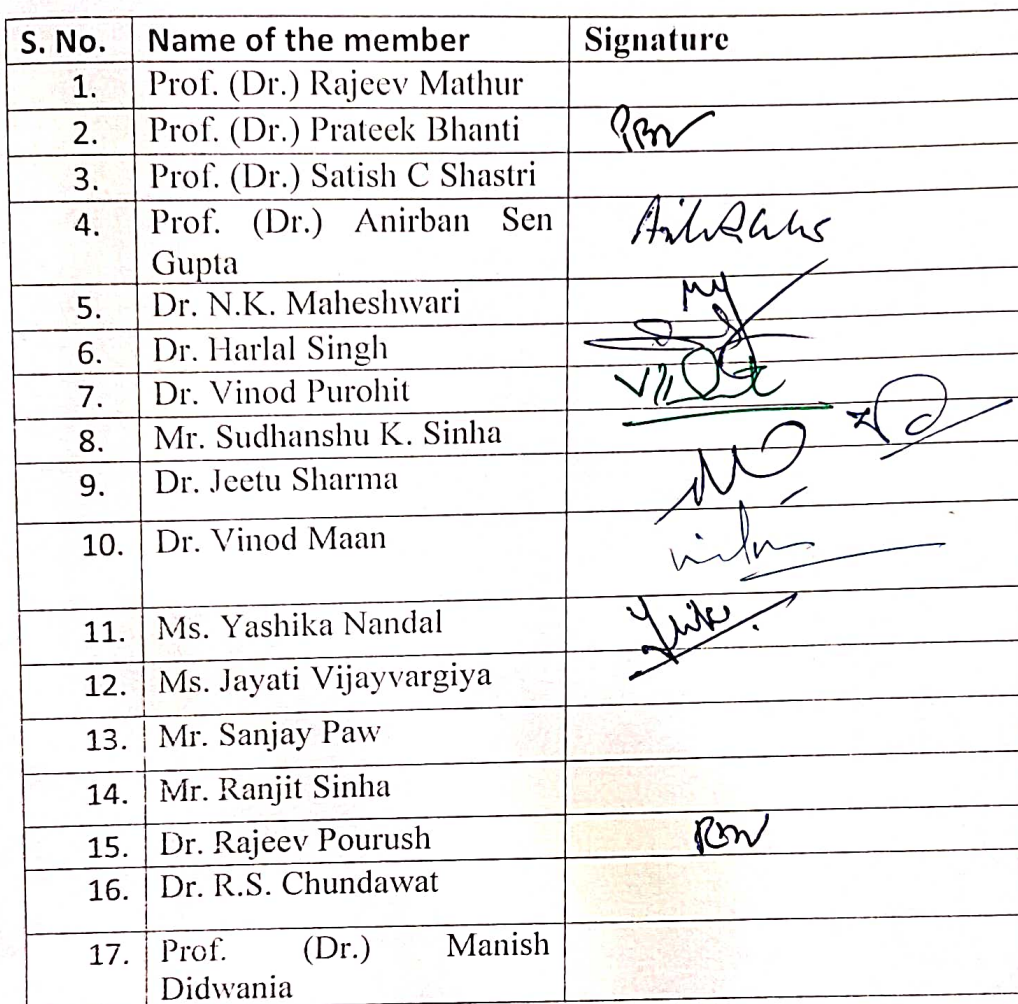 S. No. Name of the member Signature
1. Prof. (Dr.) Rajeev Mathur
2. Prof. (Dr.) Prateek Bhanti
3. Prof. (Dr.) Satish C Shastri
4. Prof. (Dr.) Anirban Sen
Gupta
5. Dr. N.K. Maheshwari
6. Dr. Harlal Singh
7. Dr. Vinod Purohit
8. Mr. Sudhanshu K. Sinha
9. Dr. Jeetu Sharma
10. Dr. Vinod Maan
11. Ms. Yashika Nandal
12. Ms. Jayati Vijayvargiya
13. Mr. Sanjay Paw
14. Mr. Ranjit Sinha
15. Dr. Rajeev Pourush
16. Dr. R.S. Chundawat
17. Prof. (Dr.) Manish
Didwania